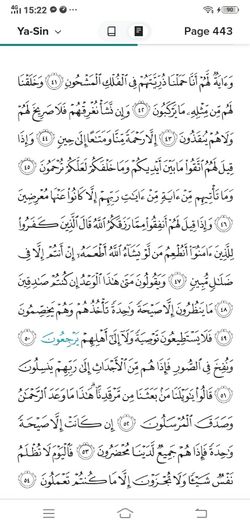 15:22
90
Ya-Sin
Page 443
وَءَايَةٌ لَّهُمْ أَنَّا حَمَلْنَا ذُرِّيَّتَهُمْ فِي الْفُلْكِ الْمَشْحُونِ ٤١ وَخَلَقْنَا
لَهُم مِّن مِّثْلِهِ مَا يَرْكَبُونَ ٤٢ وَإِن نَّشَأْ نُغْرِقْهُمْ فَلَا صَرِيخَ لَهُمْ
وَلَا هُمْ يُنقَذُونَ ٤٣ إِلَّا رَحْمَةً مِّنَّا وَمَتَاعًا إِلَىٰ حِينٍ ٤٤ وَإِذَا
قِيلَ لَهُمُ اتَّقُوا مَا بَيْنَ أَيْدِيكُمْ وَمَا خَلْفَكُمْ لَعَلَّكُمْ تُرْحَمُونَ ٤٥
وَمَا تَأْتِيهِم مِّنْ ءَايَةٍ مِّنْ ءَايَٰتِ رَبِّهِمْ إِلَّا كَانُوا عَنْهَا مُعْرِضِينَ
٤٦ وَإِذَا قِيلَ لَهُمْ أَنفِقُوا مِمَّا رَزَقَكُمُ اللَّهُ قَالَ الَّذِينَ كَفَرُوا
لِلَّذِينَ ءَامَنُوا أَنُطْعِمُ مَن لَّوْ يَشَاءُ اللَّهُ أَطْعَمَهُ إِنْ أَنتُمْ إِلَّا فِي
ضَلَٰلٍ مُّبِينٍ ٤٧ وَيَقُولُونَ مَتَىٰ هَٰذَا الْوَعْدُ إِن كُنتُمْ صَٰدِقِينَ
٤٨ مَا يَنظُرُونَ إِلَّا صَيْحَةً وَٰحِدَةً تَأْخُذُهُمْ وَهُمْ يَخِصِّمُونَ
٤٩ فَلَا يَسْتَطِيعُونَ تَوْصِيَةً وَلَا إِلَىٰ أَهْلِهِمْ يَرْجِعُونَ ٥٠
وَنُفِخَ فِي الصُّورِ فَإِذَا هُم مِّنَ الْأَجْدَاثِ إِلَىٰ رَبِّهِمْ يَنسِلُونَ
٥١ قَالُوا يَٰوَيْلَنَا مَن بَعَثَنَا مِن مَّرْقَدِنَا هَٰذَا مَا وَعَدَ الرَّحْمَٰنُ
وَصَدَقَ الْمُرْسَلُونَ ٥٢ إِن كَانَتْ إِلَّا صَيْحَةً
وَٰحِدَةً فَإِذَا هُمْ جَمِيعٌ لَّدَيْنَا مُحْضَرُونَ ٥٣ فَالْيَوْمَ لَا تُظْلَمُ
نَفْسٌ شَيْئًا وَلَا تُجْزَوْنَ إِلَّا مَا كُنتُمْ تَعْمَلُونَ ٥٤